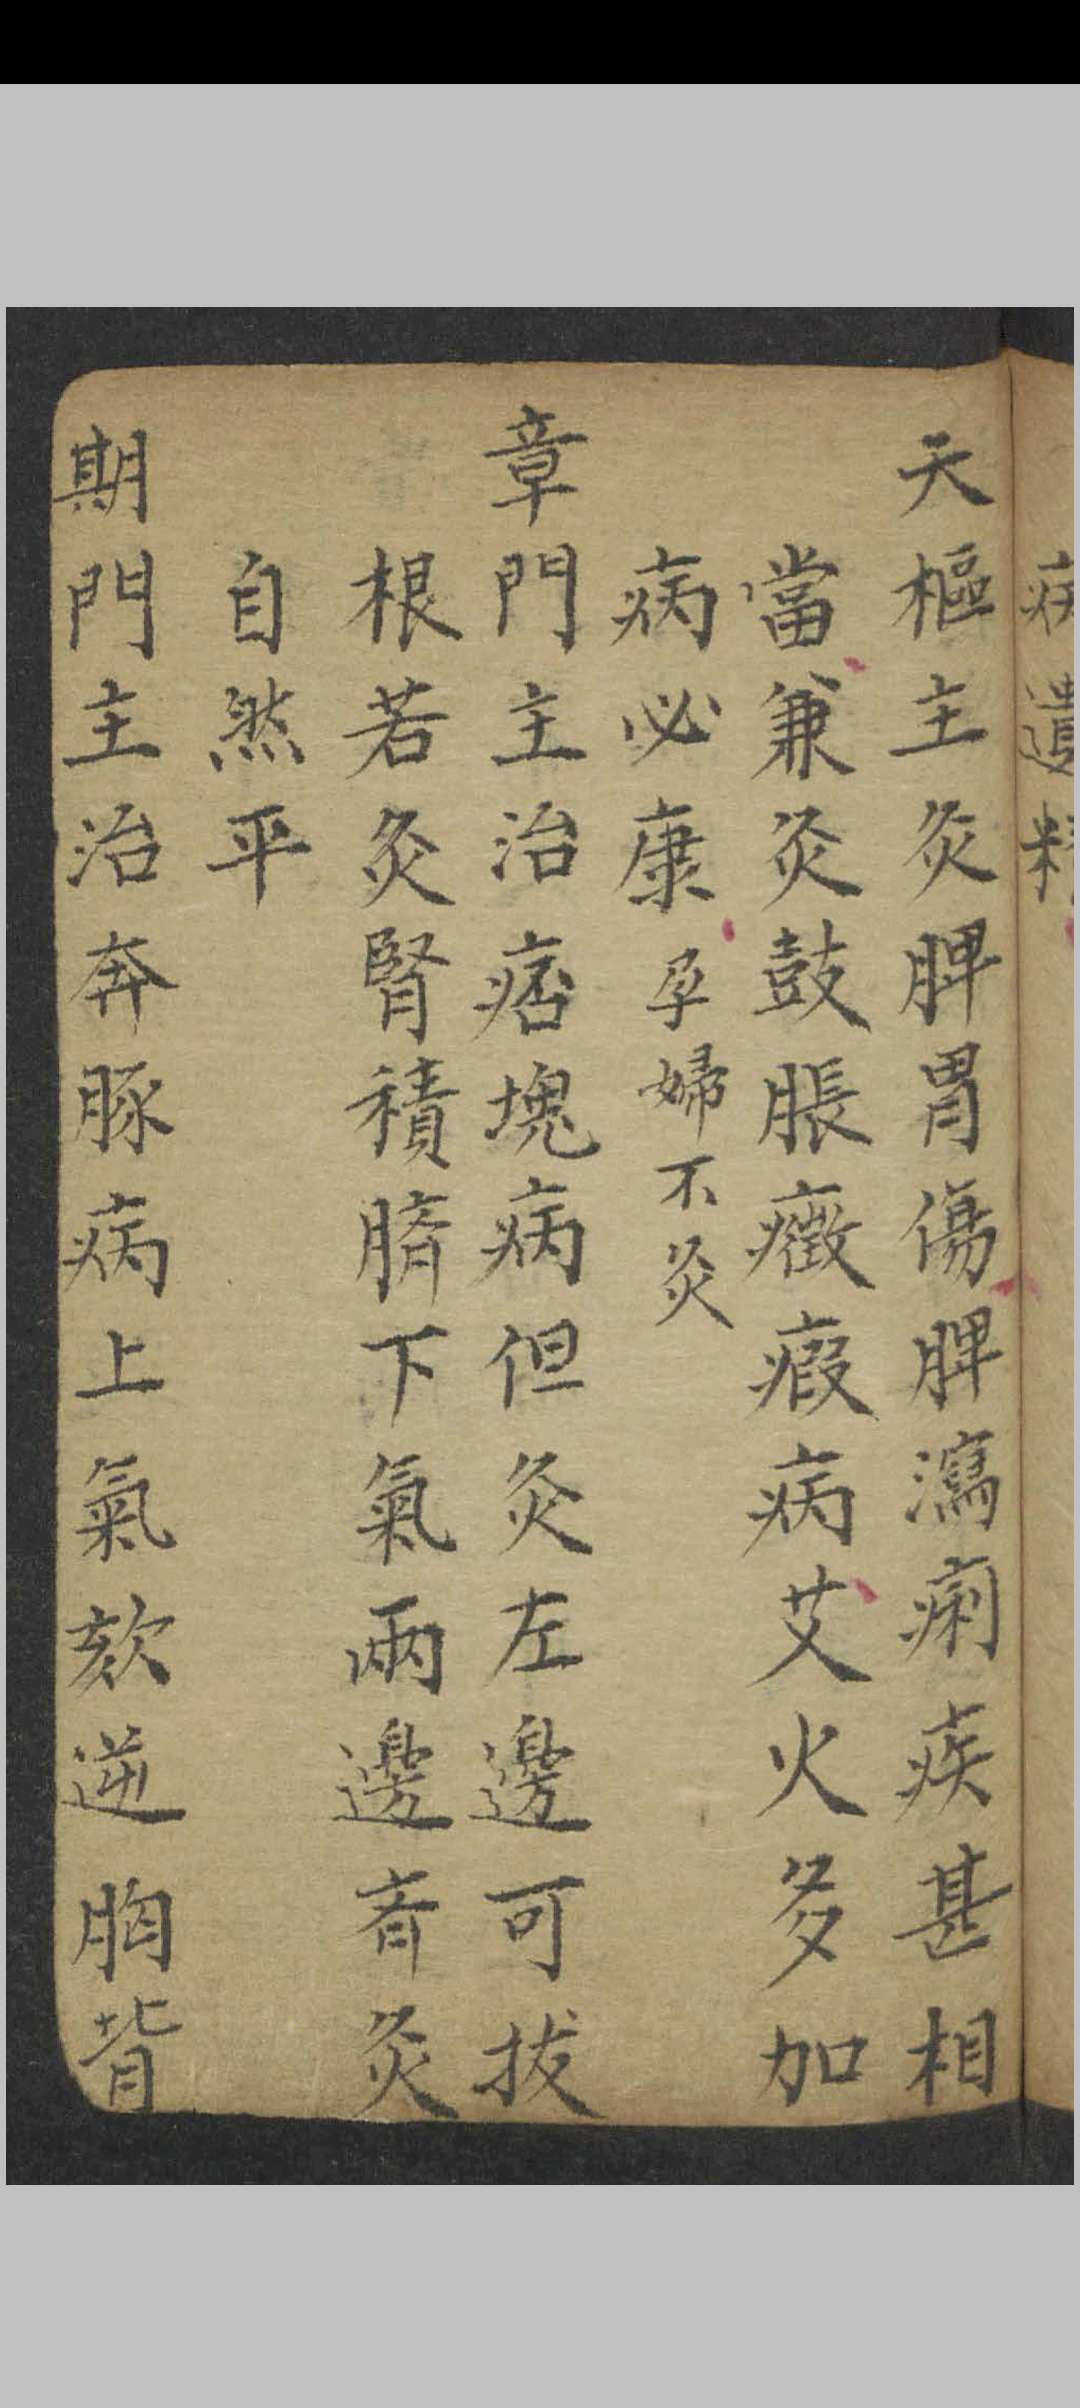 病遺精
天樞主灸脾胃傷脾瀉痢疾甚相
當兼灸鼓脹癥瘕病艾火多加
病必康孕婦不灸
章門主治痞塊病但灸左邊可拔
根若灸腎積臍下氣兩邊齊灸
自然平
期門主治奔豚病上氣欬逆胸背